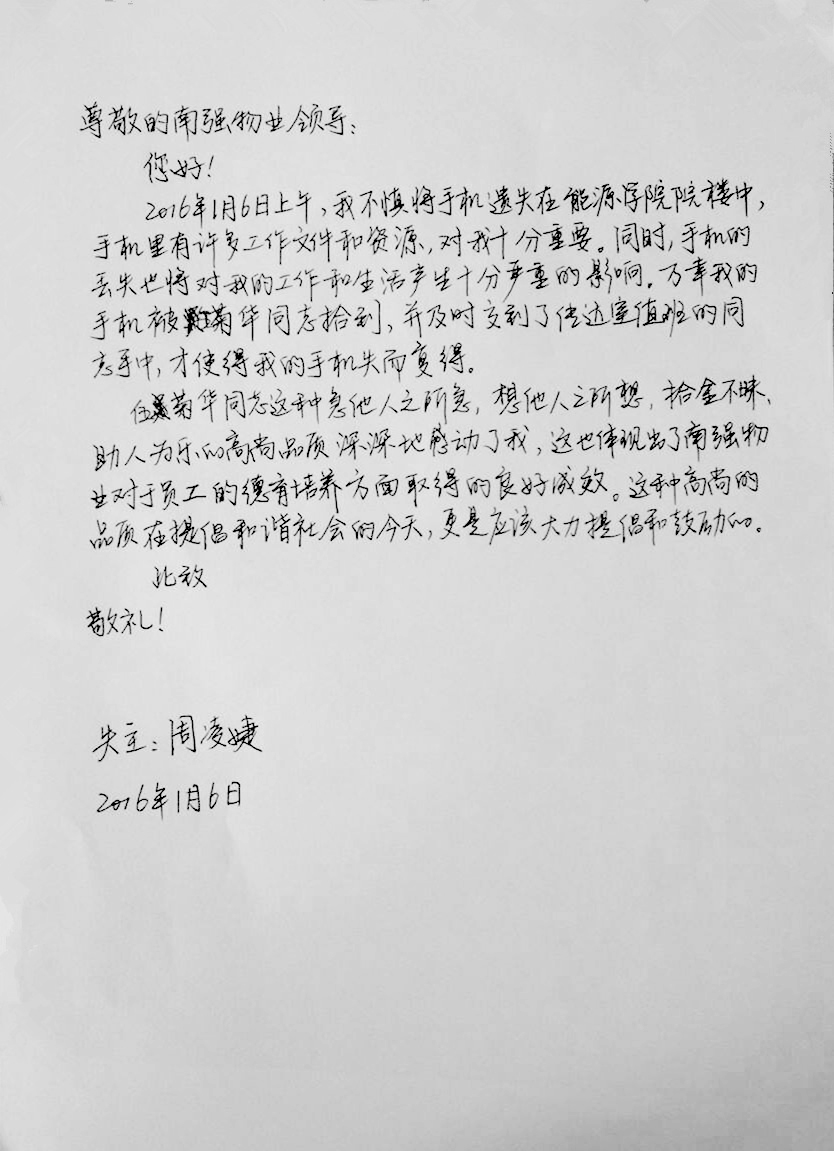 尊敬的南强物业领导：
您好！
2016年1月6日上午，我不慎将手机遗失在能源学院院楼中，
手机里有许多工作文件和资源，对我十分重要。同时，手机的
丢失也将对我的工作和生活产生十分严重的影响。万幸我的
手机被菊华同志拾到，并及时交到了传达室值班的同
志手中，才使得我的手机失而复得。
菊华同志这种急他人之所急，想他人之所想，拾金不昧、
助人为乐的高尚品质深深地感动了我，这也体现出了南强物
业对于员工的德育培养方面取得的良好成效。这种高尚的
品质在提倡和谐社会的今天，更是应该大力提倡和鼓励的。
此致
敬礼！
失主：周凌婕
2016年1月6日